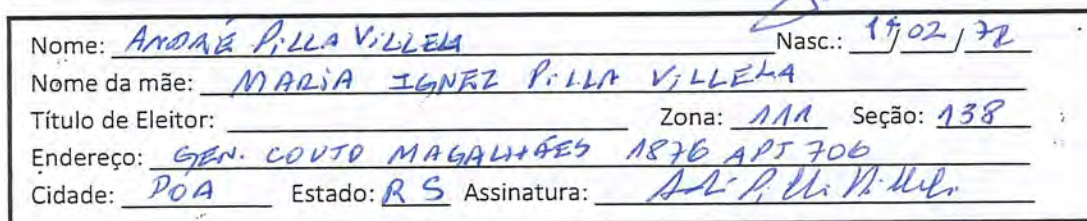 Nome: ANDRÉ PILLA VILLELA Nasc.: 19/02/72
Nome da mãe: MARIA IGNEZ PILLA VILLELA
Título de Eleitor: Zona: 111 Seção: 138
Endereço: GEN. COUTO MAGALHÃES 1876 APT 706
Cidade: POA Estado: RS Assinatura: